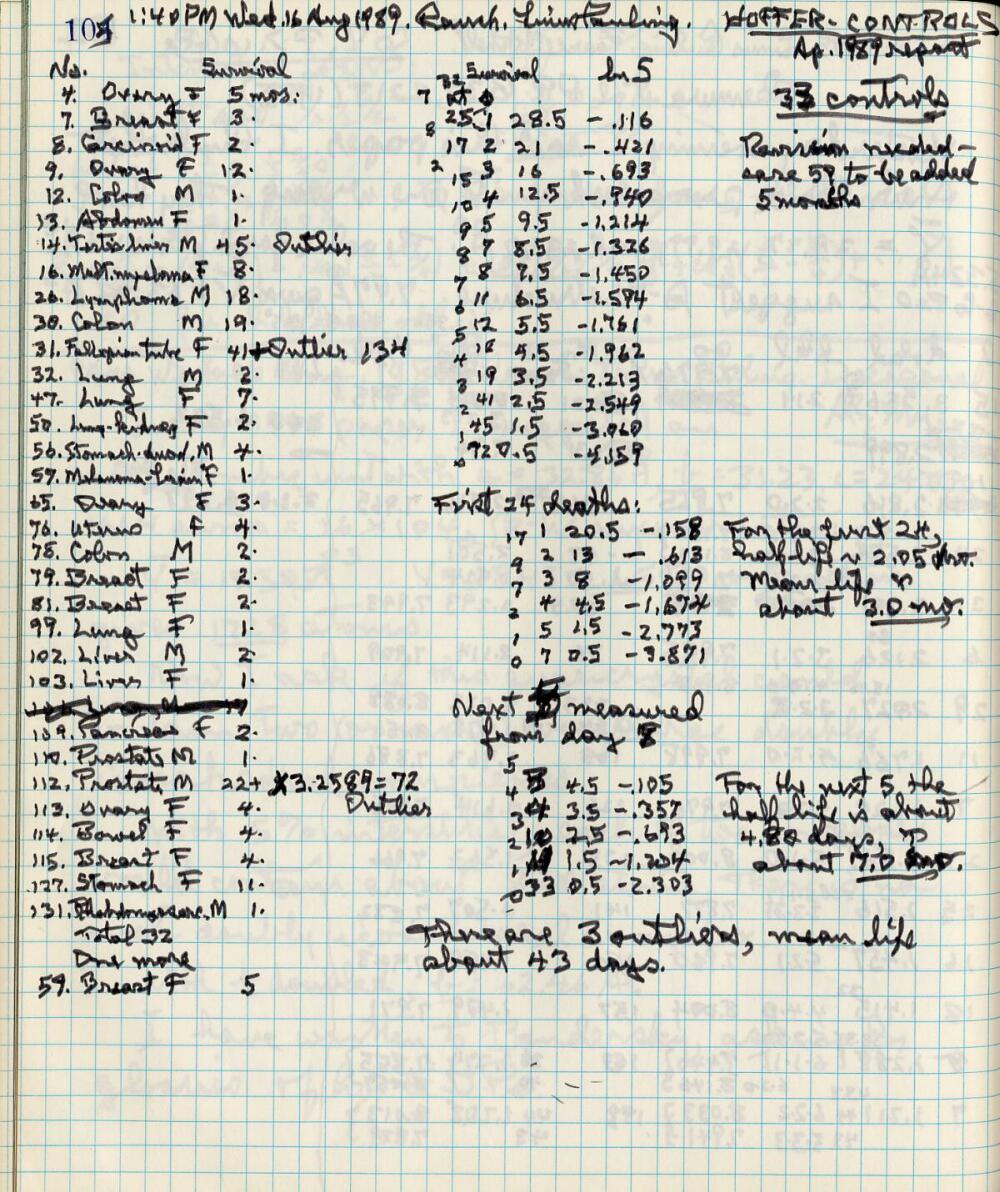 105 1:40 PM Wed. 16 Aug 1989. Ranch. Linus Pauling. HOFFER-CONTROLS
Ap. 1989 report
33 controls
Revision needed -
case 59 to be added
5 months
No. Survival
4. Ovary F 5 mos.
7. Breast F 3.
8. Carcinoid F 2.
9. Ovary F 12.
12. Colon M 1.
13. Abdomen F 1.
14. Testis-liver M 45. Outlier
16. Mult. myeloma F 8.
26. Lymphoma M 18.
30. Colon M 19.
31. Fallopian tube F 41+ Outlier 134
32. Lung M 2.
47. Lung F 7.
50. Lung-kidney F 2.
56. Stomach-duod. M 4.
57. Melanoma-brain F 1.
65. Ovary F 3.
76. Uterus F 4.
78. Colon M 2.
79. Breast F 2.
81. Breast F 2.
99. Lung F 1.
102. Liver M 2.
103. Liver F 1.
109. Pancreas F 2.
110. Prostate M 1.
112. Prostate M 22+ x3.2589=72
Outlier
113. Ovary F 4.
114. Bowel F 4.
115. Breast F 4.
127. Stomach F 11.
131. Rhabdomyosarc. M 1.
Total 32
One more
59. Breast F 5
Survival ln S
25 1 28.5 -.116
17 2 21 -.421
15 3 16 -.693
10 4 12.5 -.940
9 5 9.5 -1.214
8 7 8.5 -1.326
7 8 7.5 -1.450
6 11 6.5 -1.594
5 12 5.5 -1.761
4 18 4.5 -1.962
3 19 3.5 -2.213
2 41 2.5 -2.549
1 45 1.5 -3.060
0 72 0.5 -4.159
First 24 deaths:
17 1 20.5 -.158
9 2 13 -.613
7 3 8 -1.099
2 4 4.5 -1.674
1 5 1.5 -2.773
0 7 0.5 -3.871
For the first 24,
half-life ~ 2.05 mo.
Mean life τ
about 3.0 mo.
Next 5 measured
from day 8
5
4 8 4.5 -.105
3 11 3.5 -.357
2 12 2.5 -.693
1 18 1.5 -1.204
0 33 0.5 -2.303
For the next 5 the
half life is about
4.88 days, τ
about 7.0 mo.
There are 3 outliers, mean life
about 43 days.